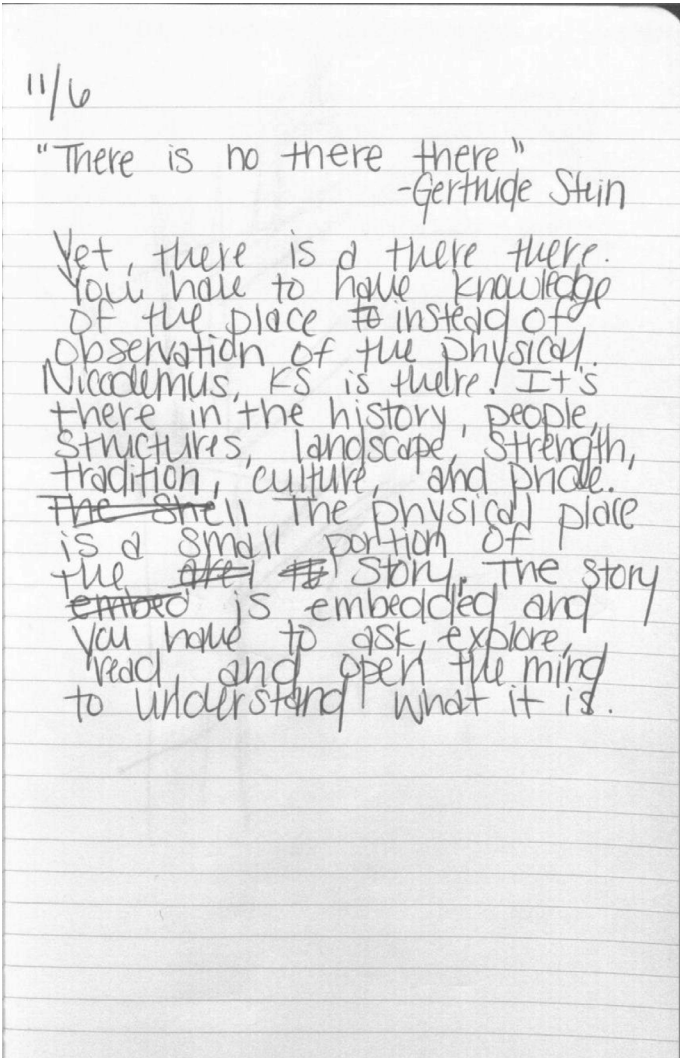 11/6
"There is no there there"
-Gertrude Stein
Yet, there is a there there.
You have to have knowledge
of the place to instead of
observation of the physical.
Nicodemus, KS is there! It's
there in the history, people,
structures, landscape, strength,
tradition, culture, and pride.
The Shell The physical place
is a small portion of
the story. The story
embed is embedded and
you have to ask, explore,
read, and open the mind
to understand what it is.